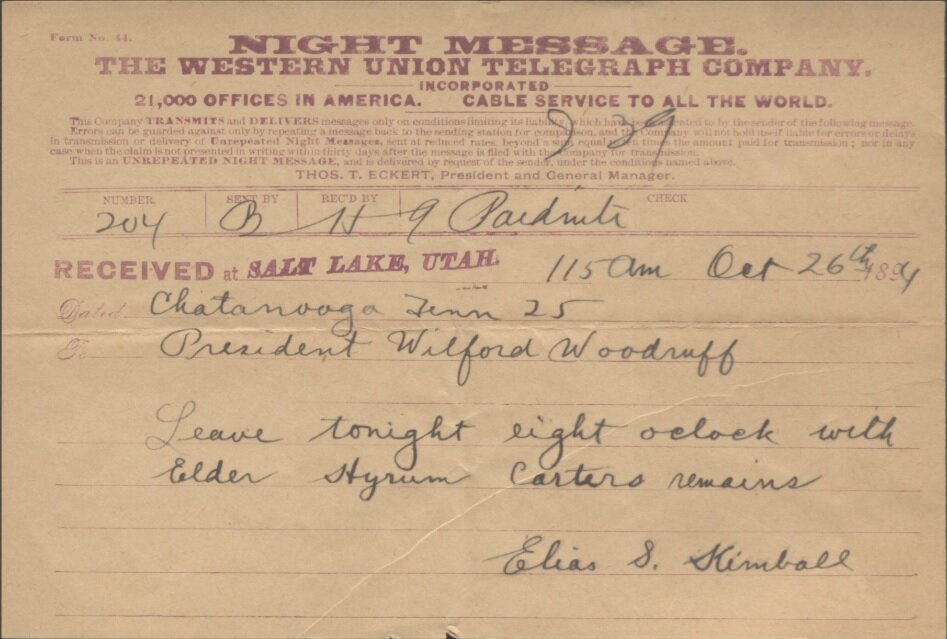 Form No. 44.
NIGHT MESSAGE.
THE WESTERN UNION TELEGRAPH COMPANY.
INCORPORATED
21,000 OFFICES IN AMERICA. CABLE SERVICE TO ALL THE WORLD.
2 39
This Company TRANSMITS and DELIVERS messages only on conditions limiting its liability, which have been assented to by the sender of the following message.
Errors can be guarded against only by repeating a message back to the sending station for comparison, and the Company will not hold itself liable for errors or delays
in transmission or delivery of Unrepeated Night Messages, sent at reduced rates, beyond a sum equal to ten times the amount paid for transmission; nor in any
case when the claim is not presented in writing within thirty days after the message is filed with the Company for transmission.
This is an UNREPEATED NIGHT MESSAGE, and is delivered by request of the sender, under the conditions named above.
THOS. T. ECKERT, President and General Manager.
NUMBER SENT BY REC'D BY CHECK
204 B H 9 Paid
RECEIVED at SALT LAKE, UTAH. 115 am Oct 26th 1894
Dated Chatanooga Tenn 25
To President Wilford Woodruff
Leave tonight eight oclock with
Elder Hyrum Carters remains
Elias S. Kimball